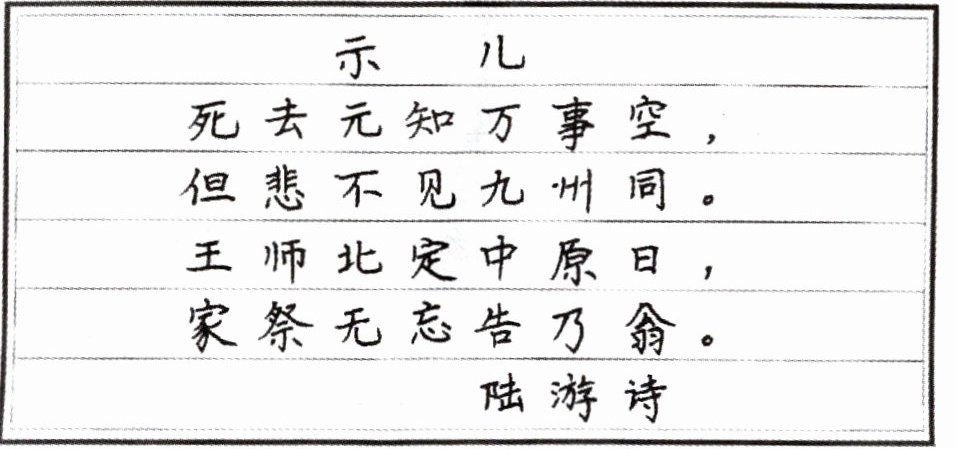 示 儿
死去元知万事空，
但悲不见九州同。
王师北定中原日，
家祭无忘告乃翁。
陆游诗